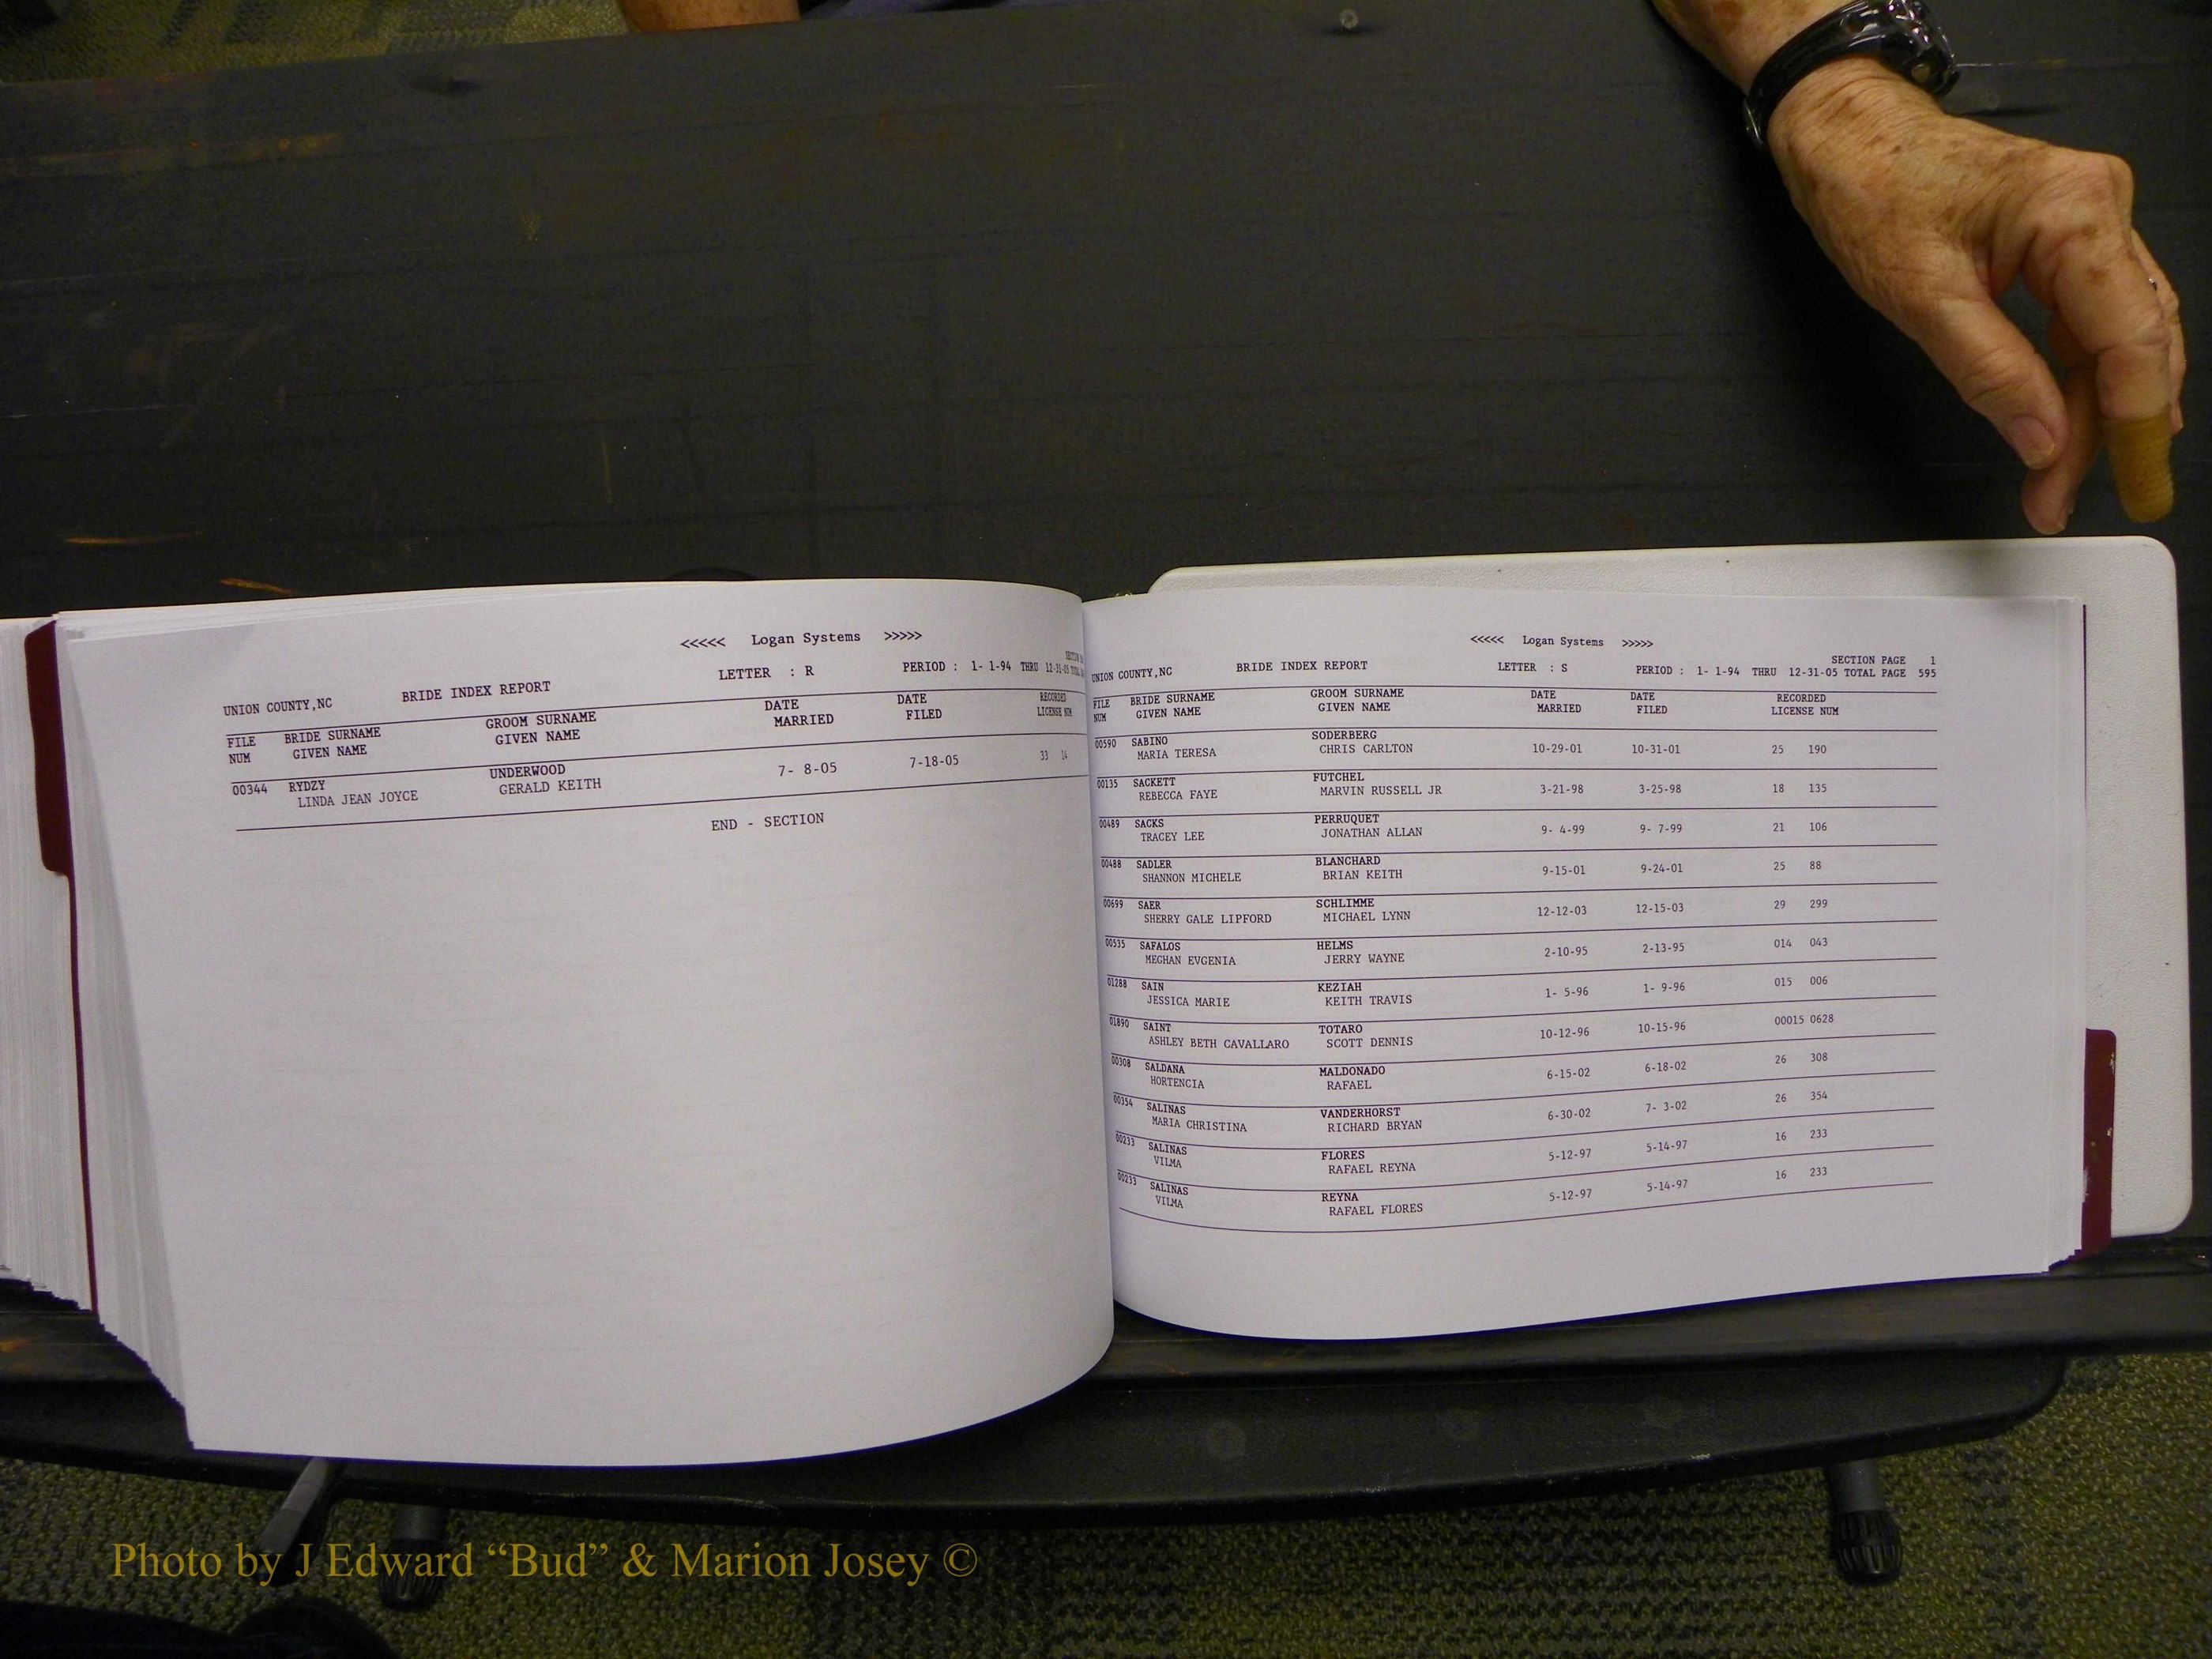 <<<<< Logan Systems >>>>>
UNION COUNTY,NC BRIDE INDEX REPORT LETTER : R PERIOD : 1- 1-94 THRU 12-31-05 TOTAL
FILE BRIDE SURNAME GROOM SURNAME DATE DATE RECORDED
NUM GIVEN NAME GIVEN NAME MARRIED FILED LICENSE NUM
00344 RYDZY UNDERWOOD 7- 8-05 7-18-05 33
LINDA JEAN JOYCE GERALD KEITH
END - SECTION
<<<<< Logan Systems >>>>>
SECTION PAGE 1
UNION COUNTY,NC BRIDE INDEX REPORT LETTER : S PERIOD : 1- 1-94 THRU 12-31-05 TOTAL PAGE 595
FILE BRIDE SURNAME GROOM SURNAME DATE DATE RECORDED
NUM GIVEN NAME GIVEN NAME MARRIED FILED LICENSE NUM
00590 SABINO SODERBERG 10-29-01 10-31-01 25 190
MARIA TERESA CHRIS CARLTON
00135 SACKETT FUTCHEL 3-21-98 3-25-98 18 135
REBECCA FAYE MARVIN RUSSELL JR
00489 SACKS PERRUQUET 9- 4-99 9- 7-99 21 106
TRACEY LEE JONATHAN ALLAN
00488 SADLER BLANCHARD 9-15-01 9-24-01 25 88
SHANNON MICHELE BRIAN KEITH
00699 SAER SCHLIMME 12-12-03 12-15-03 29 299
SHERRY GALE LIPFORD MICHAEL LYNN
00535 SAFALOS HELMS 2-10-95 2-13-95 014 043
MEGHAN EVGENIA JERRY WAYNE
01288 SAIN KEZIAH 1- 5-96 1- 9-96 015 006
JESSICA MARIE KEITH TRAVIS
01890 SAINT TOTARO 10-12-96 10-15-96 00015 0628
ASHLEY BETH CAVALLARO SCOTT DENNIS
00308 SALDANA MALDONADO 6-15-02 6-18-02 26 308
HORTENCIA RAFAEL
00354 SALINAS VANDERHORST 6-30-02 7- 3-02 26 354
MARIA CHRISTINA RICHARD BRYAN
00233 SALINAS FLORES 5-12-97 5-14-97 16 233
VILMA RAFAEL REYNA
00233 SALINAS REYNA 5-12-97 5-14-97 16 233
VILMA RAFAEL FLORES
Photo by J Edward “Bud” & Marion Josey ©